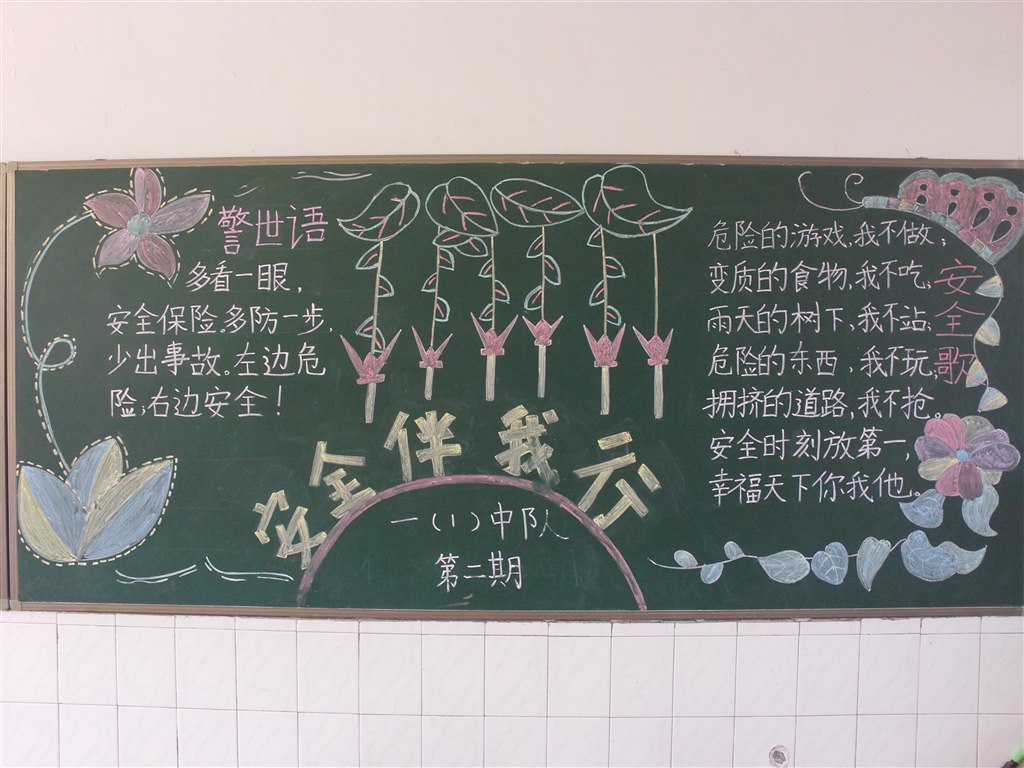 警世语
多看一眼，
安全保险。多防一步，
少出事故。左边危
险；右边安全！
安全伴我行
一（1）中队
第二期
安全歌
危险的游戏，我不做；
变质的食物，我不吃；
雨天的树下，我不站；
危险的东西，我不玩；
拥挤的道路，我不抢。
安全时刻放第一，
幸福天下你我他。